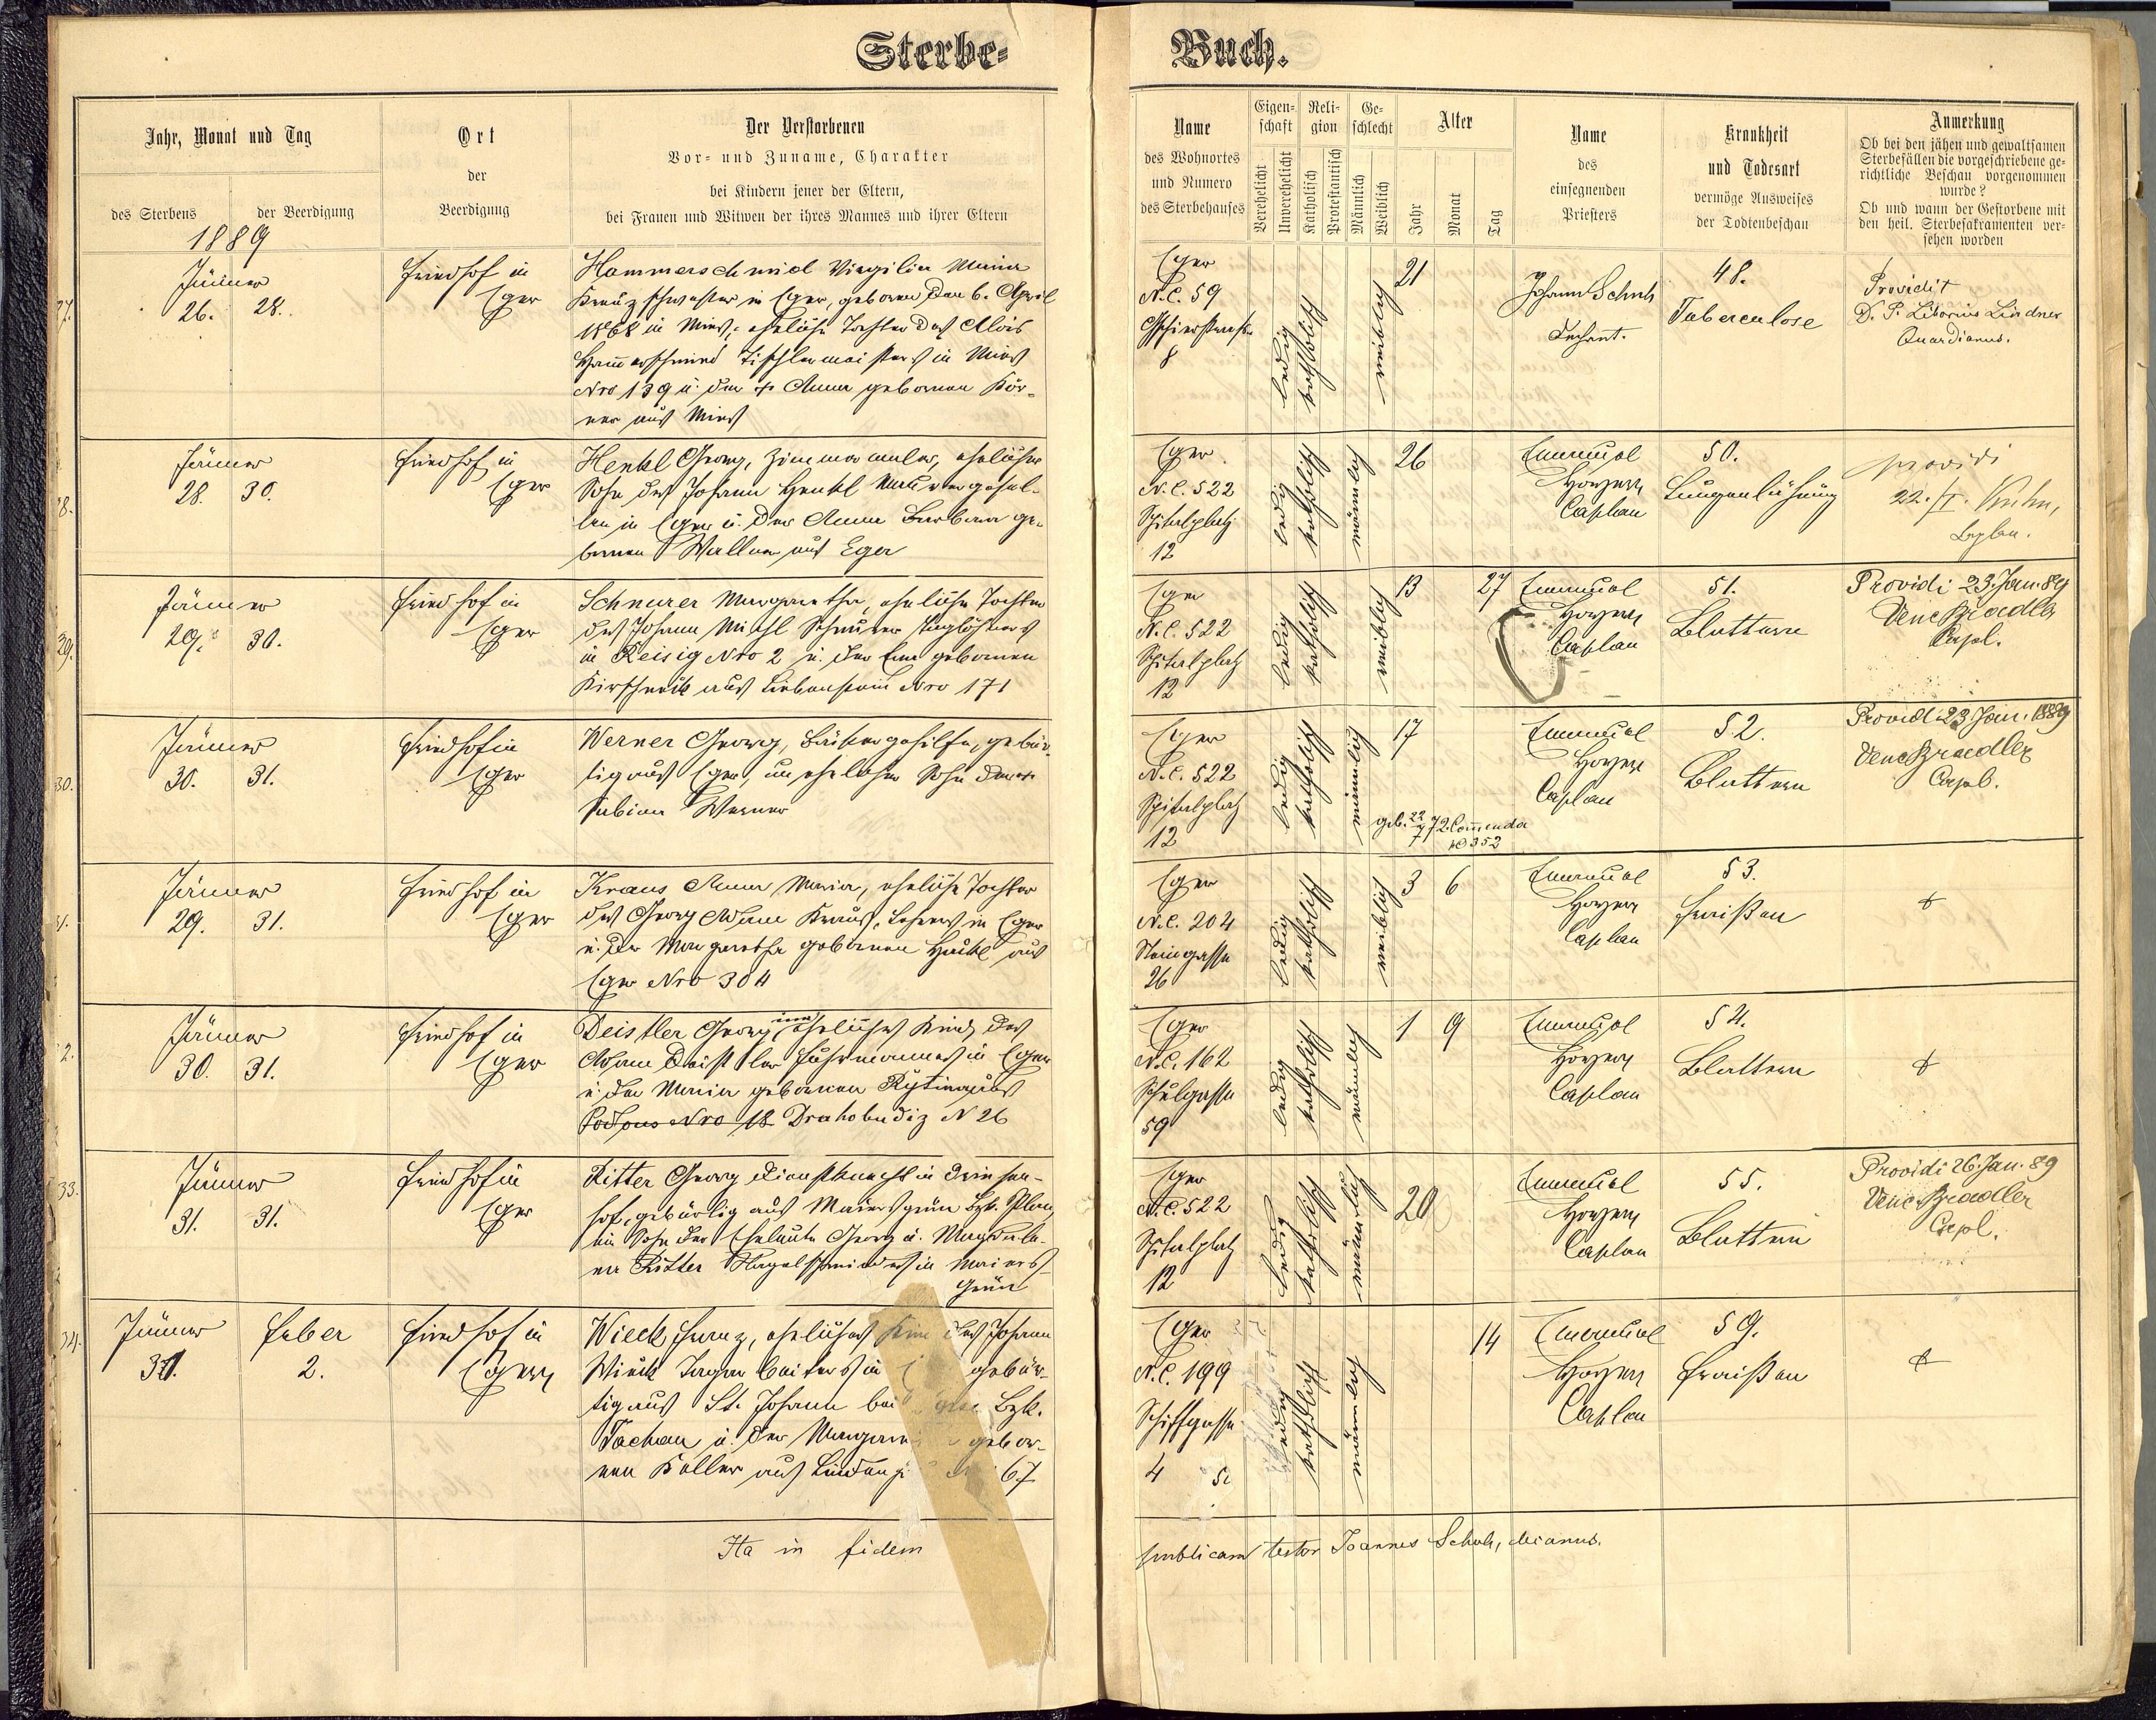 Sterbe=
Buch.
Jahr, Monat und Tag
des Sterbens
der Beerdigung
Ort
der
Beerdigung
Der Verstorbenen
Vor- und Zuname, Charakter
bei Kindern jener der Eltern,
bei Frauen und Witwen der ihres Mannes und ihrer Eltern
Name
des Wohnortes
und Numero
des Sterbehauses
Eigen=
schaft
Verehelicht
Unverehelicht
Reli=
gion
Katholisch
Protestantisch
Ge=
schlecht
Männlich
Weiblich
Alter
Jahr
Monat
Tag
Name
des
einsegnenden
Priesters
Krankheit
und Todesart
vermöge Ausweises
der Todtenbeschau
Anmerkung
Ob bei den jähen und gewaltsamen
Sterbefällen die vorgeschriebene ge=
richtliche Beschau vorgenommen
wurde?
Ob und wann der Gestorbene mit
den heil. Sterbesakramenten ver=
sehen worden
1889
27.
Jänner
26. 28.
Friedhof in
Eger
Hammerschmid Virgilia Maria
Kreuzschwester in Eger, geboren den 6. April
1868 in Mies, eheliche Tochter des Alois
Hammerschmied Tischlermeisters in Mies
Nro 139 u. der Anna gebornen Kör-
ner aus Mies
Eger
N.C. 59
8
ledig
katholisch
weiblich
21
Johann Schuh
Dechant.
48.
Tuberculose
Providit
D. P. Liborius Lindner
Quardianus.
28.
Jänner
28. 30.
Friedhof in
Eger
Henkl Georg, Zimmermaler, ehelicher
Sohn des Johann Henkl Maurergesel-
len in Eger u. der Anna Barbara ge-
bornen Wallner aus Eger
Eger
N.C. 522
Spitalplatz
12
ledig
katholisch
männlich
26
Emanuel
Hoyer
Caplan
50.
Lungenlähmung
providi
22./I. Kuhn,
Caplan.
29.
Jänner
29. 30.
Friedhof in
Eger
Schnurer Margaretha, eheliche Tochter
des Johann Michl Schnurer Taglöhners
in Reisig Nro 2 u. der Eva gebornen
aus Liebenstein Nro 171
Eger
N.C. 522
Spitalplatz
12
ledig
katholisch
weiblich
13 27
Emanuel
Hoyer
Caplan
51.
Blattern
Providi 23. Jan. 89
Venc Bradler
Capl.
30.
Jänner
30. 31.
Friedhof in
Eger
Werner Georg, Bäckergehilfe, gebür-
tig aus Eger, unehelicher Sohn der
Sabina Werner
Eger
N.C. 522
Spitalplatz
12
ledig
katholisch
männlich
17
geb. 22/7 72 Commenda
No 352
Emanuel
Hoyer
Caplan
52.
Blattern
Providi 23. Jan. 1889
Venc Bradler
Capl.
31.
Jänner
29. 31.
Friedhof in
Eger
Kraus Anna Maria, eheliche Tochter
des Georg Adam Kraus, Lehrers in Eger
u. der Margaretha gebornen Hackl aus
Eger Nro 304
Eger
N.C. 204
Steingasse
26
ledig
katholisch
weiblich
3 6
Emanuel
Hoyer
Caplan
53.
Fraißen
+
32.
Jänner
30. 31.
Friedhof in
Eger
Deistler Georg, eheliches Kind des
Adam Deistler Fuhrmannes in Eger
u. der Maria gebornen Rytina aus
Nro 18 Drahobudiz N 26
Eger
N.C. 162
Schulgasse
59
ledig
katholisch
männlich
1 9
Emanuel
Hoyer
Caplan
54.
Blattern
+
33.
Jänner
31. 31.
Friedhof in
Eger
Ritter Georg Dienstknecht in
hof, gebürtig aus Maiersgrün Bzk. Plan
ein Sohn der Eheleute Georg u. Magdale-
na Ritter Nagelschmiedes in Maiers-
grün
Eger
N.C. 522
Spitalplatz
12
ledig
katholisch
männlich
20
Emanuel
Hoyer
Caplan
55.
Blattern
Providi 26. Jan. 89
Venc. Bradler
Capl.
34.
Jänner
31.
Feber
2.
Friedhof in
Eger
Wieck Franz, eheliches Kind des Johann
Wieck Tagarbeiters in gebür-
tig aus St. Johann bei Bzk.
Tachau u. der gebor-
nen Koller aus 67
Eger
N.C. 199
Schiffgasse
4
ledig
katholisch
männlich
14
Emanuel
Hoyer
Caplan
59.
Fraißen
+
Ita in fidem
publicam testor Joannes Schuh, decanus.